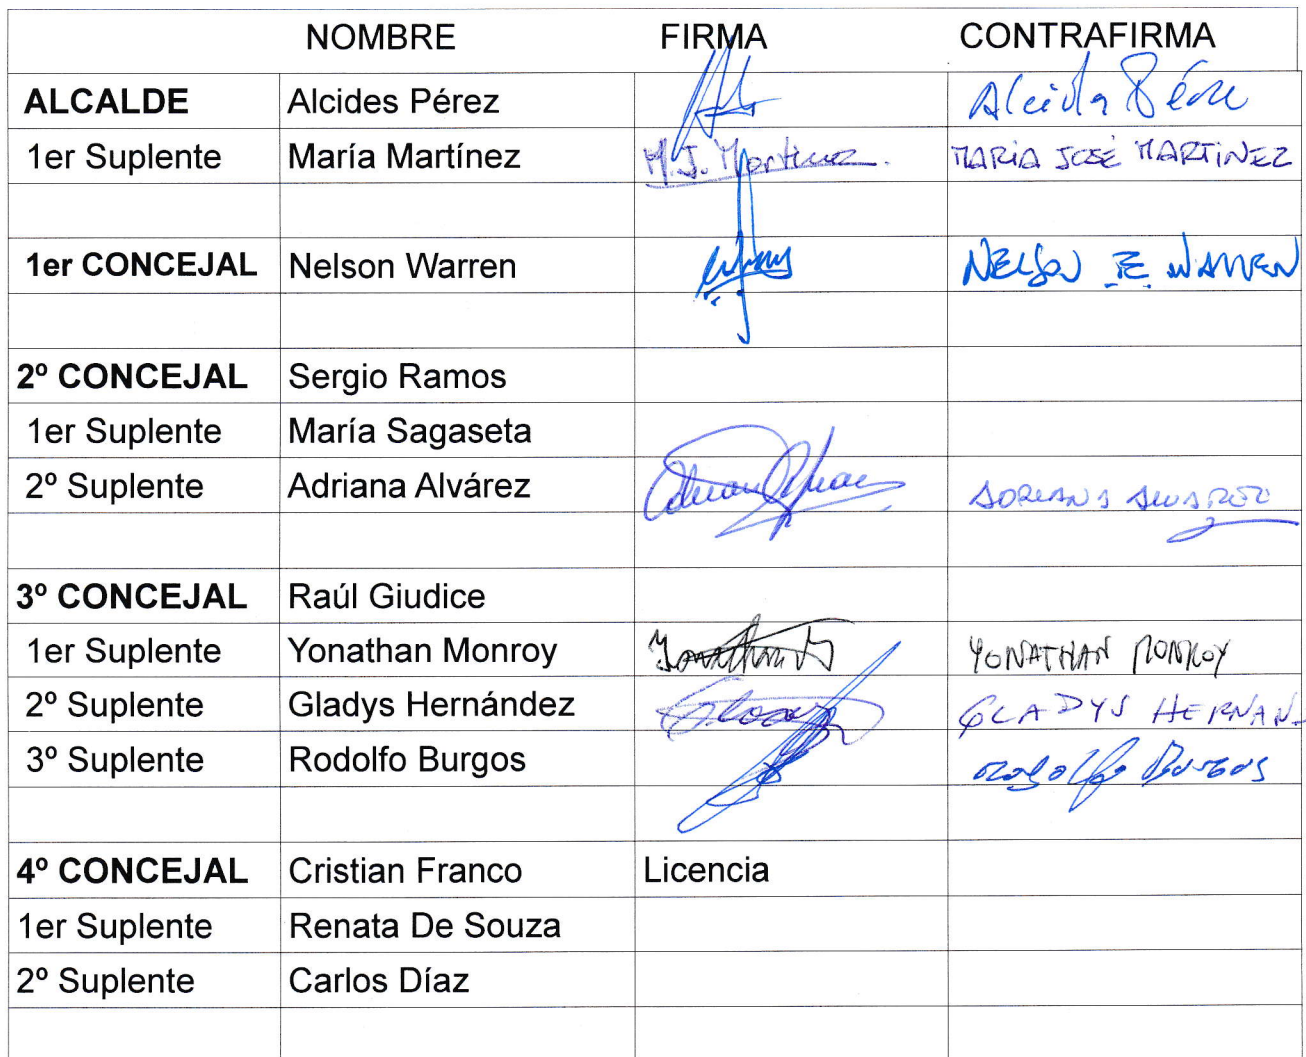 NOMBRE FIRMA CONTRAFIRMA
ALCALDE Alcides Pérez Alcides Pérez
1er Suplente María Martínez M.J. Martínez. MARIA JOSÉ MARTINEZ
1er CONCEJAL Nelson Warren NELSON E. WARREN
2º CONCEJAL Sergio Ramos
1er Suplente María Sagaseta
2º Suplente Adriana Alvárez ADRIANA ALVAREZ
3º CONCEJAL Raúl Giudice
1er Suplente Yonathan Monroy Yonathan M YONATHAN MONROY
2º Suplente Gladys Hernández GLADYS HERNAN-
3º Suplente Rodolfo Burgos Rodolfo Burgos
4º CONCEJAL Cristian Franco Licencia
1er Suplente Renata De Souza
2º Suplente Carlos Díaz